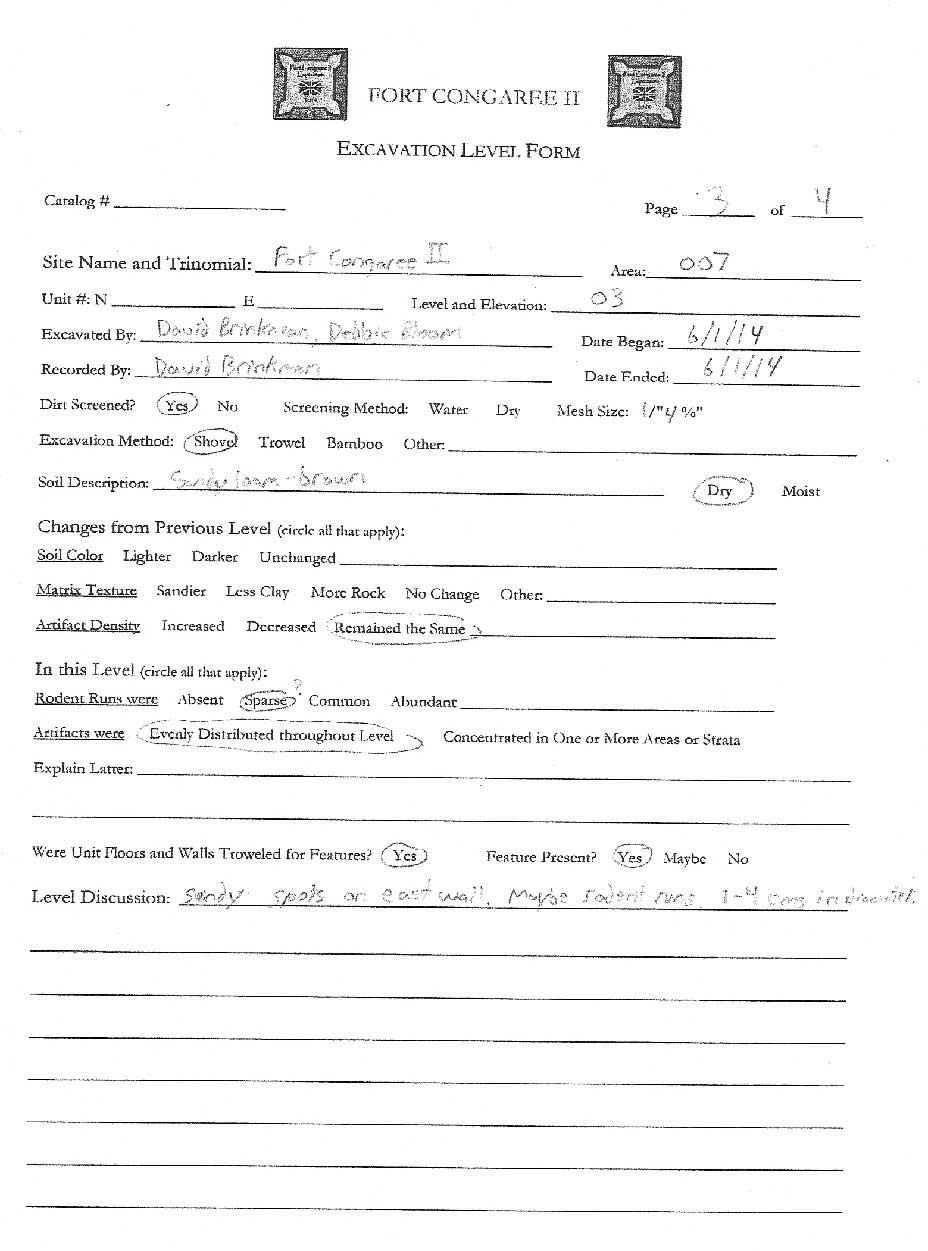 FORT CONGAREE II
EXCAVATION LEVEL FORM
Catalog #
Page 3 of 4
Site Name and Trinomial: Fort Congaree II Area: 007
Unit #: N E Level and Elevation: 03
Excavated By: David Brinkman, Debbie Bloom Date Began: 6/1/14
Recorded By: David Brinkman Date Ended: 6/1/14
Dirt Screened? Yes No Screening Method: Water Dry Mesh Size:
Excavation Method: Shovel Trowel Bamboo Other:
Soil Description: Sandy loam - brown Dry Moist
Changes from Previous Level (circle all that apply):
Soil Color Lighter Darker Unchanged
Matrix Texture Sandier Less Clay More Rock No Change Other:
Artifact Density Increased Decreased Remained the Same
In this Level (circle all that apply):
Rodent Runs were Absent Sparse ? Common Abundant
Artifacts were Evenly Distributed throughout Level Concentrated in One or More Areas or Strata
Explain Latter:
Were Unit Floors and Walls Troweled for Features? Yes Feature Present? Yes Maybe No
Level Discussion: Sandy spots on east wall. Maybe rodent runs. 1-4 cms in diameter.